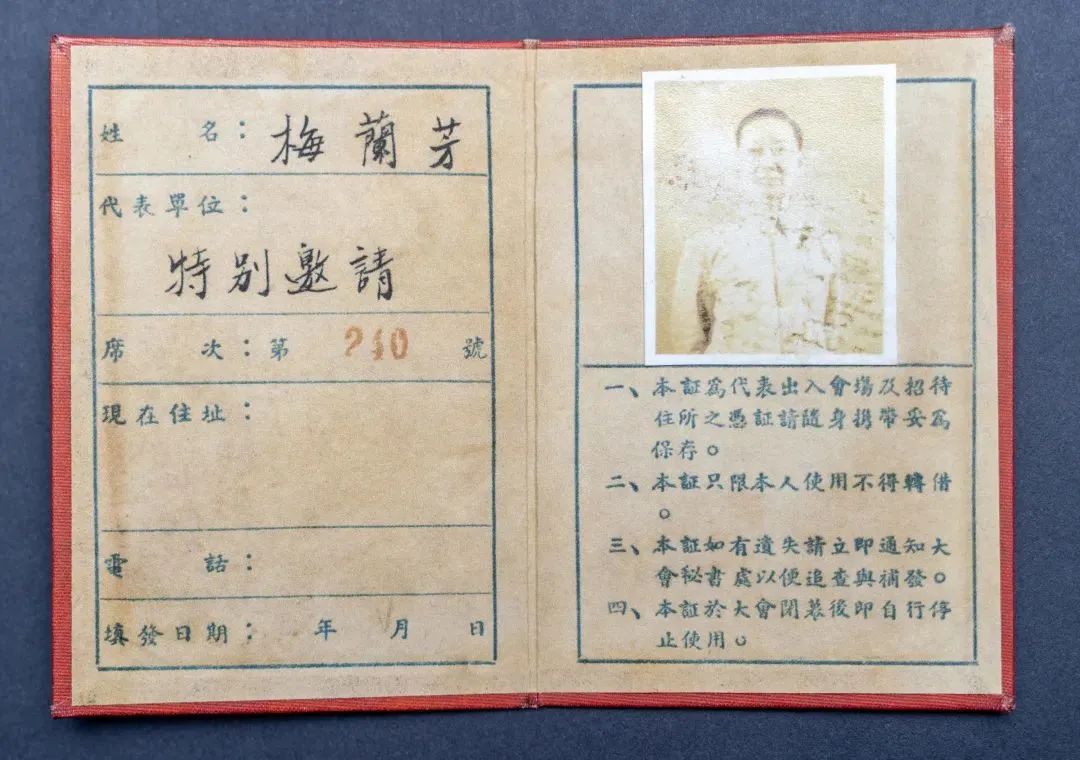 姓名：梅蘭芳
代表單位：
特别邀請
席次：第240號
現在住址：
電話：
填發日期：年月日
一、本証爲代表出入會場及招待
住所之憑証請隨身携帶妥爲
保存。
二、本証只限本人使用不得轉借
。
三、本証如有遺失請立即通知大
會秘書處以便追查與補發。
四、本証於大會閉幕後即自行停
止使用。